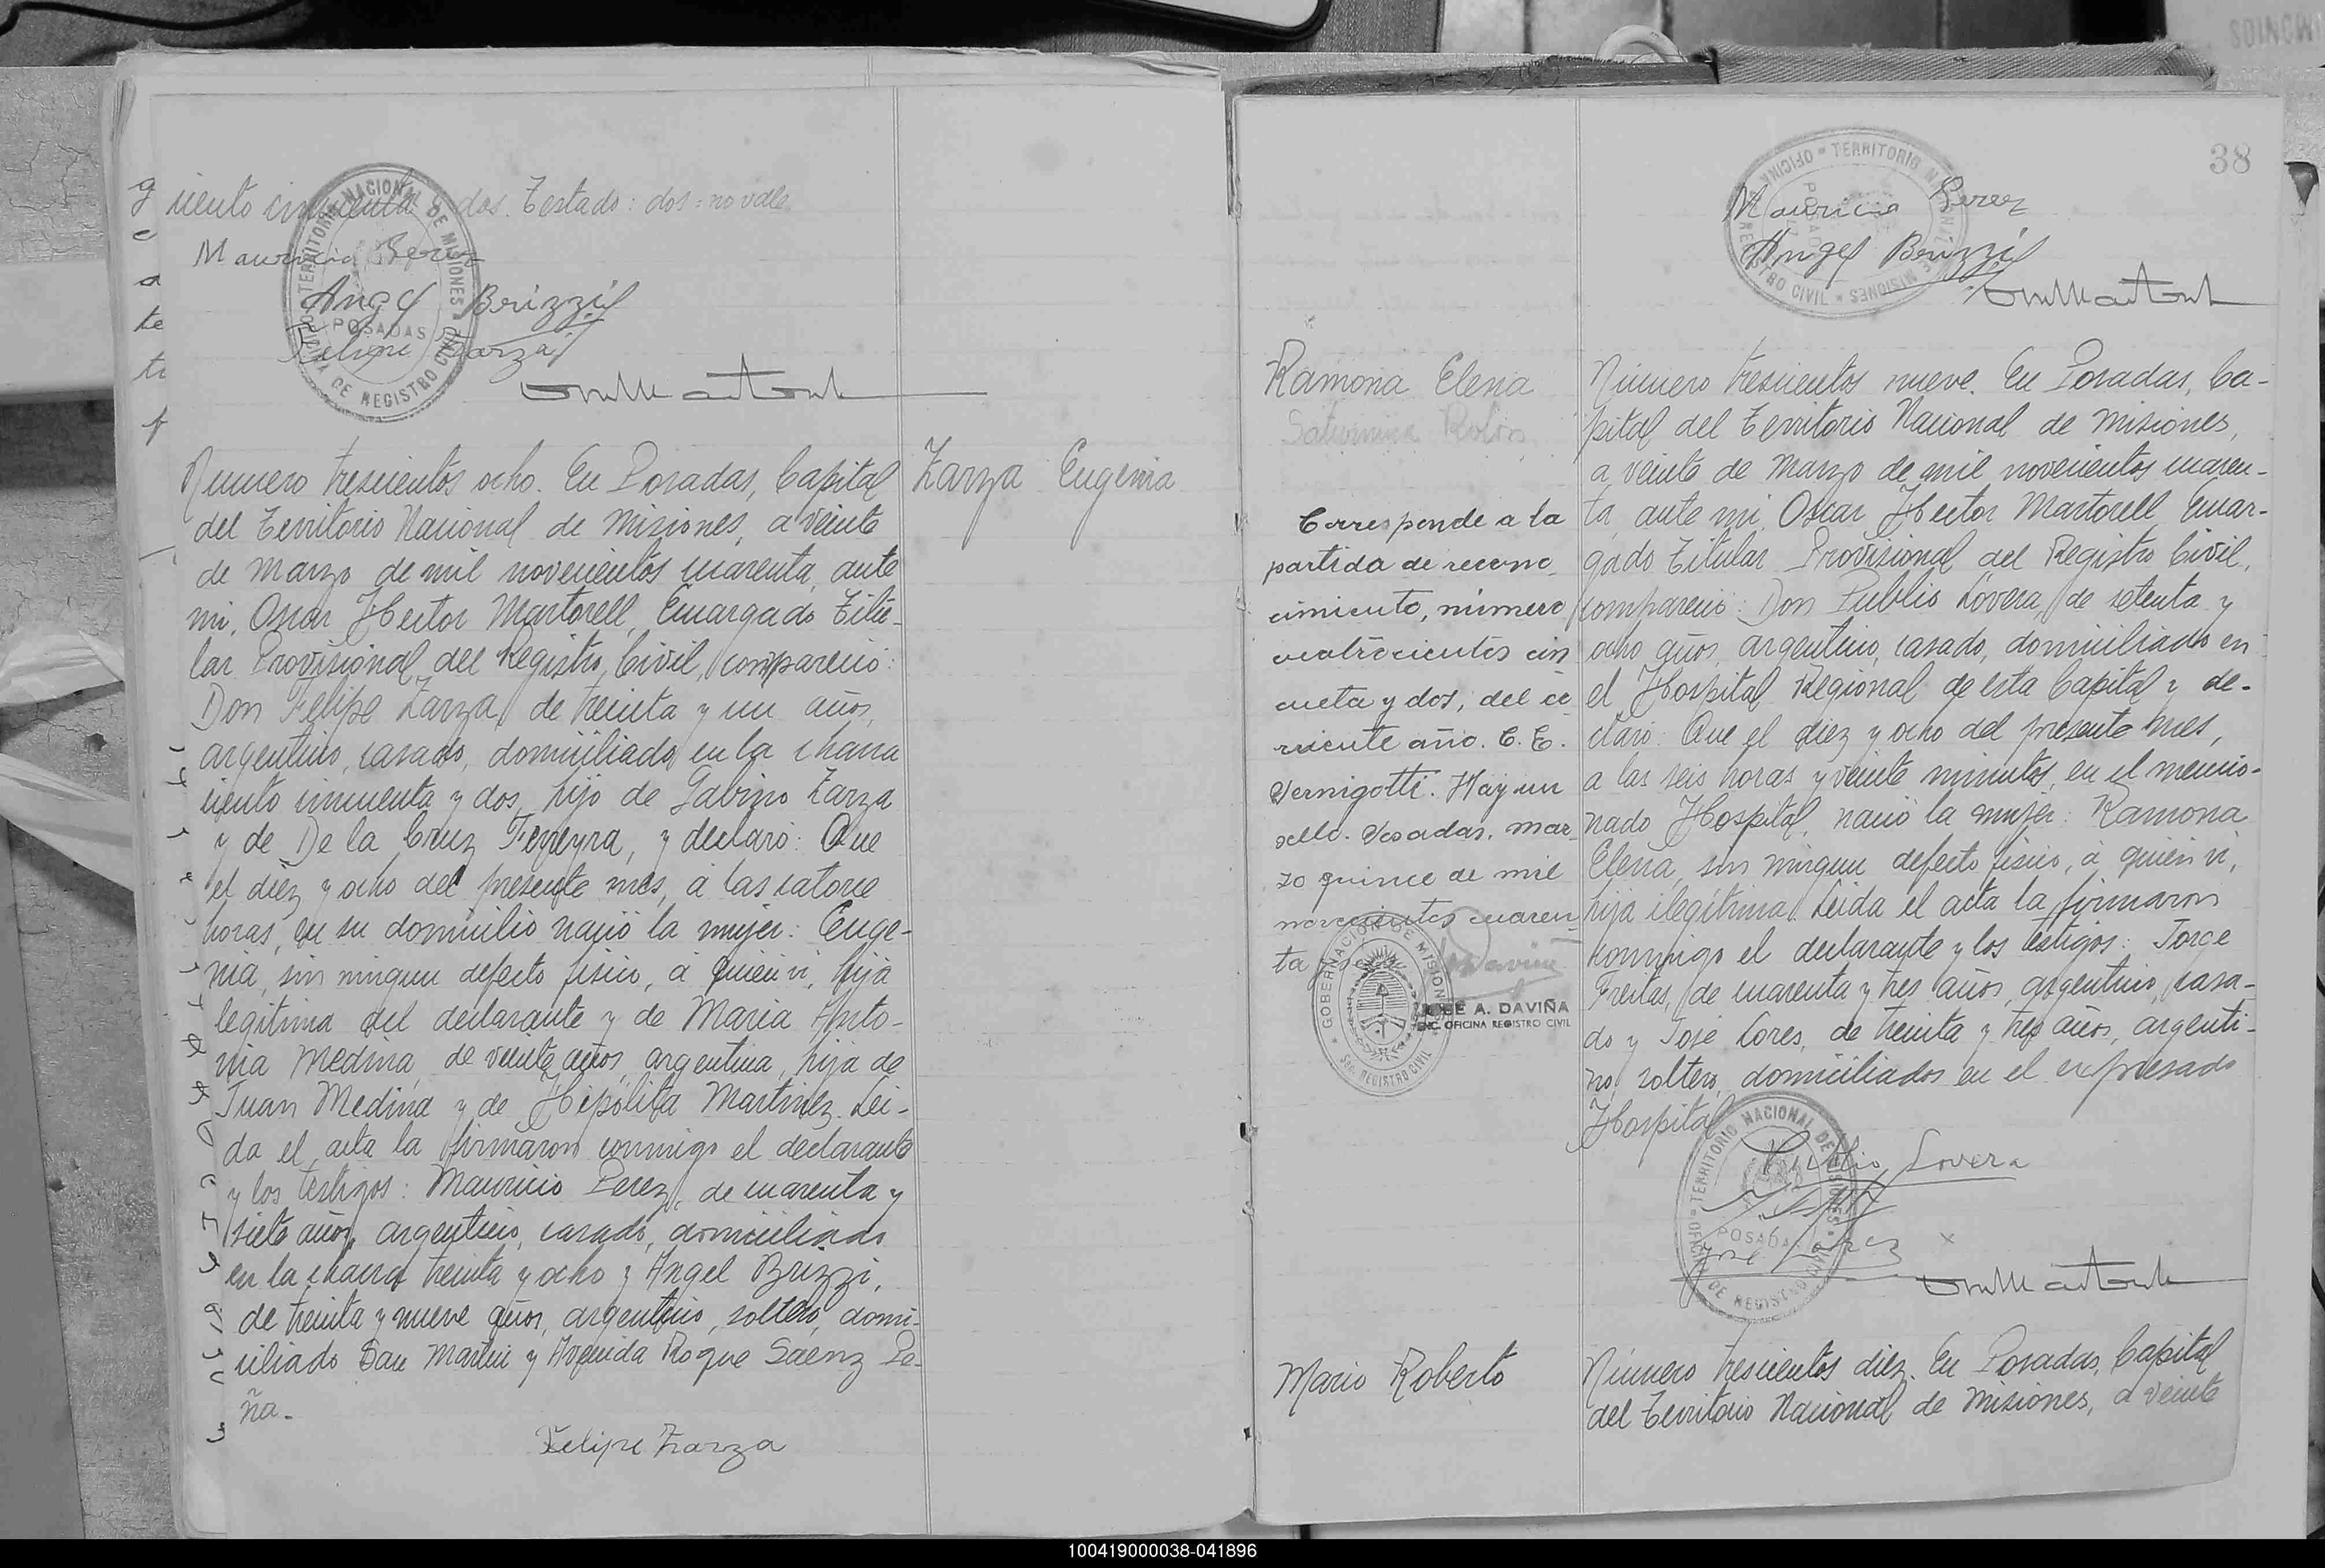 ciento cincuenta y dos. Testado: dos = no vale
Mauricio Perez
Angel Brizzi
Felipe Zarza
TERRITORIO NACIONAL DE MISIONES
POSADAS
OFICINA DE REGISTRO CIVIL
Zarza Eugenia
Número trescientos ocho. En Posadas, Capital
del Territorio Nacional de Misiones, a veinte
de Marzo de mil novecientos cuarenta, ante
mi, Oscar Hector Martorell, Encargado Titu-
lar Provisional del Registro Civil, compareció:
Don Felipe Zarza, de treinta y un años,
argentino, casado, domiciliado en la chacra
ciento cincuenta y dos, hijo de Gabino Zarza
y de De la Cruz Ferreyra, y declaró: Que
el diez y ocho del presente mes, a las catorce
horas, en su domicilio nació la mujer: Euge-
nia, sin ningun defecto físico, a quien vi, hija
legítima del declarante y de Maria Anto-
nia Medina, de veinte años, argentina, hija de
Juan Medina y de Hipólita Martinez. Lei-
da el acta la firmaron conmigo el declarante
y los testigos: Mauricio Perez, de cuarenta y
siete años, argentino, casado, domiciliado
en la chacra treinta y ocho y Angel Brizzi,
de treinta y nueve años, argentino, soltero, domi-
ciliado San Martin y Avenida Roque Saenz Pe-
ña.-
Felipe Zarza
38
TERRITORIO NACIONAL DE MISIONES
OFICINA DE REGISTRO CIVIL
POSADAS
Mauricio Perez
Angel Brizzi
Ramona Elena
Corresponde a la
partida de recono
cimiento, número
cuatrocientos cin
cueta y dos, del co
rriente año. C. E.
Vernigotti. Hay un
sello. Posadas, mar
zo quince de mil
novecientos cuaren
ta
GOBERNACION DE MISIONES
Sec. REGISTRO CIVIL
JOSÉ A. DAVIÑA
ENC. OFICINA REGISTRO CIVIL
Número trescientos nueve. En Posadas, Ca-
pital del Territorio Nacional de Misiones,
a veinte de Marzo de mil novecientos cuaren-
ta, ante mi, Oscar Hector Martorell, Encar-
gado Titular Provisional del Registro Civil,
compareció: Don Publio Lovera, de setenta y
ocho años, argentino, casado, domiciliado en
el Hospital Regional de esta Capital y de-
claró: Que el diez y ocho del presente mes,
a las seis horas y veinte minutos, en el mencio-
nado Hospital, nació la mujer: Ramona
Elena, sin ningun defecto físico, a quien vi,
hija ilegítima. Leida el acta la firmaron
conmigo el declarante y los testigos: Jorge
Freitas, de cuarenta y tres años, argentino, casa-
do y José Cores, de treinta y tres años, argenti-
no, soltero, domiciliados en el expresado
Hospital
Publio Lovera
TERRITORIO NACIONAL DE MISIONES
POSADAS
OFICINA DE REGISTRO CIVIL
Mario Roberto
Número trescientos diez. En Posadas, Capital
del Territorio Nacional de Misiones, a veinte
100419000038-041896